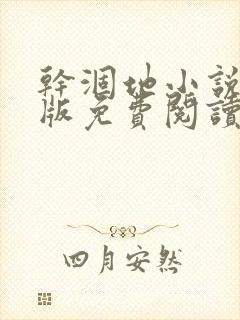 幹涸地小說
版免費閱讀
四月安然